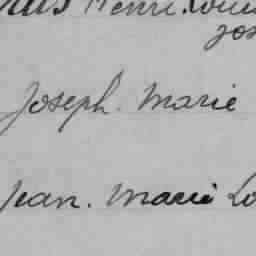 Henri
Jos
Joseph. Marie
Jean. Marie Lo